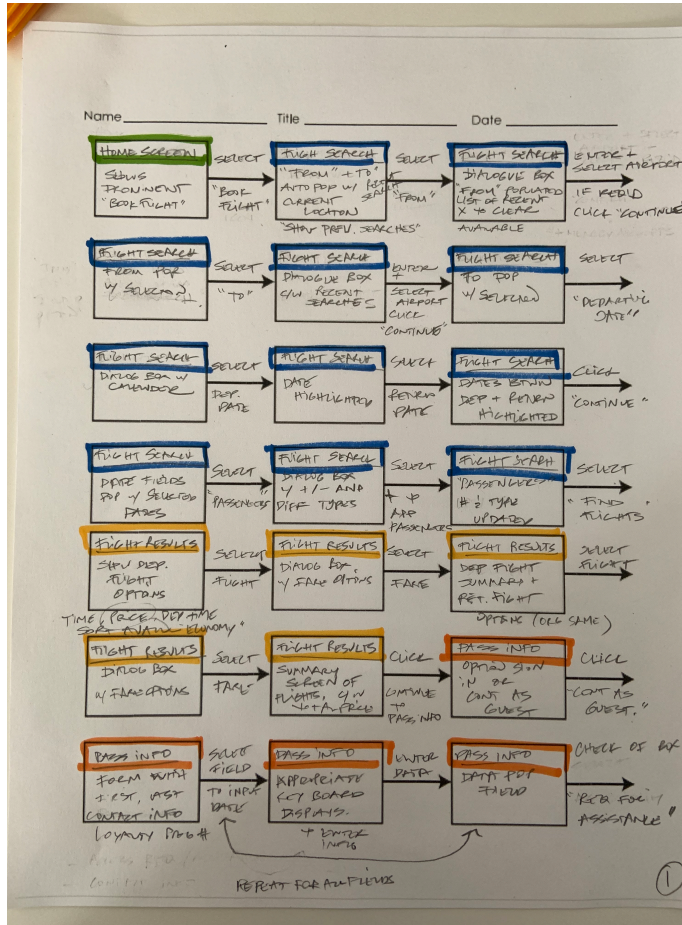 Name Title Date
HOME SCREEN
SHOWS
PROMINENT
"BOOK FLIGHT"
SELECT
"BOOK
FLIGHT"
FLIGH SEARCH
"FROM" + "TO"
AUTO POP W/ RECENT
SEARCH
CURRENT
LOCATION
"SHOW PREV. SEARCHES"
SELECT
"FROM"
FLIGHT SEARCH
DIALOGUE BOX
"FROM" POPULATED
LIST OF RECENT
X TO CLEAR
AVAILABLE
ENTER +
SELECT AIRPORT
IF REQ'D
CLICK "CONTINUE"
FLIGHT SEARCH
FROM POP
W/ SELECTION
SELECT
"TO"
FLIGHT SEARCH
DIALOGUE BOX
C/W RECENT
SEARCHES
ENTER
+
SELECT
AIRPORT
CLICK
"CONTINUE"
FLIGHT SEARCH
TO POP
W/ SELECTION
SELECT
"DEPARTING
DATE"
FLIGHT SEARCH
DIALOG BOX W/
CALENDER
SELECT
DEP.
DATE
FLIGHT SEARCH
DATE
HIGHLIGHTED
SELECT
RETURN
DATE
FLIGHT SEARCH
DATES BTWN
DEP + RETURN
HIGHLIGHTED
CLICK
"CONTINUE"
FLIGHT SEARCH
DATE FIELDS
POP W/ SELECTED
DATES
SELECT
"PASSENGERS"
FLIGHT SEARCH
DIALOG BOX
W/ +/- AND
DIFF TYPES
SELECT
+
ADD
PASSENGERS
FLIGHT SEARH
"PASSENGERS"
# & TYPE
UPDATED
SELECT
"FIND
FLIGHTS"
FLIGHT RESULTS
SHOW DEP.
FLIGHT
OPTIONS
TIME, PRICE, DEP TIME
SORT ECONOMY"
SELECT
FLIGHT
FLIGHT RESULTS
DIALOG BOX
W/ FARE OPTIONS
SELECT
FARE
FLIGHT RESULTS
DEP FLIGHT
SUMMARY +
RET. FLIGHT
OPTIONS (ORG SAME)
SELECT
FLIGHT
FLIGHT RESULTS
DIALOG BOX
W/ FARE OPTIONS
SELECT
FARE
FLIGHT RESULTS
SUMMARY
SCREEN OF
FLIGHTS, C/W
TOTAL PRICE
CLICK
CONTINUE
TO
PASS INFO
PASS INFO
OPTION SIGN
IN OR
CONT AS
GUEST
CLICK
"CONT AS
GUEST."
PASS INFO
FORM WITH
FIRST, LAST
CONTACT INFO
LOYALTY PROG #
SELECT
FIELD
TO INPUT
DATA
PASS INFO
APPROPRIATE
KEY BOARD
DISPLAYS.
+ ENTER
INFO
ENTER
DATA
PASS INFO
DATA POP
FIELD
CHECK OF BOX
"REQ FOR
ASSISTANCE"
REPEAT FOR ALL FIELDS
1